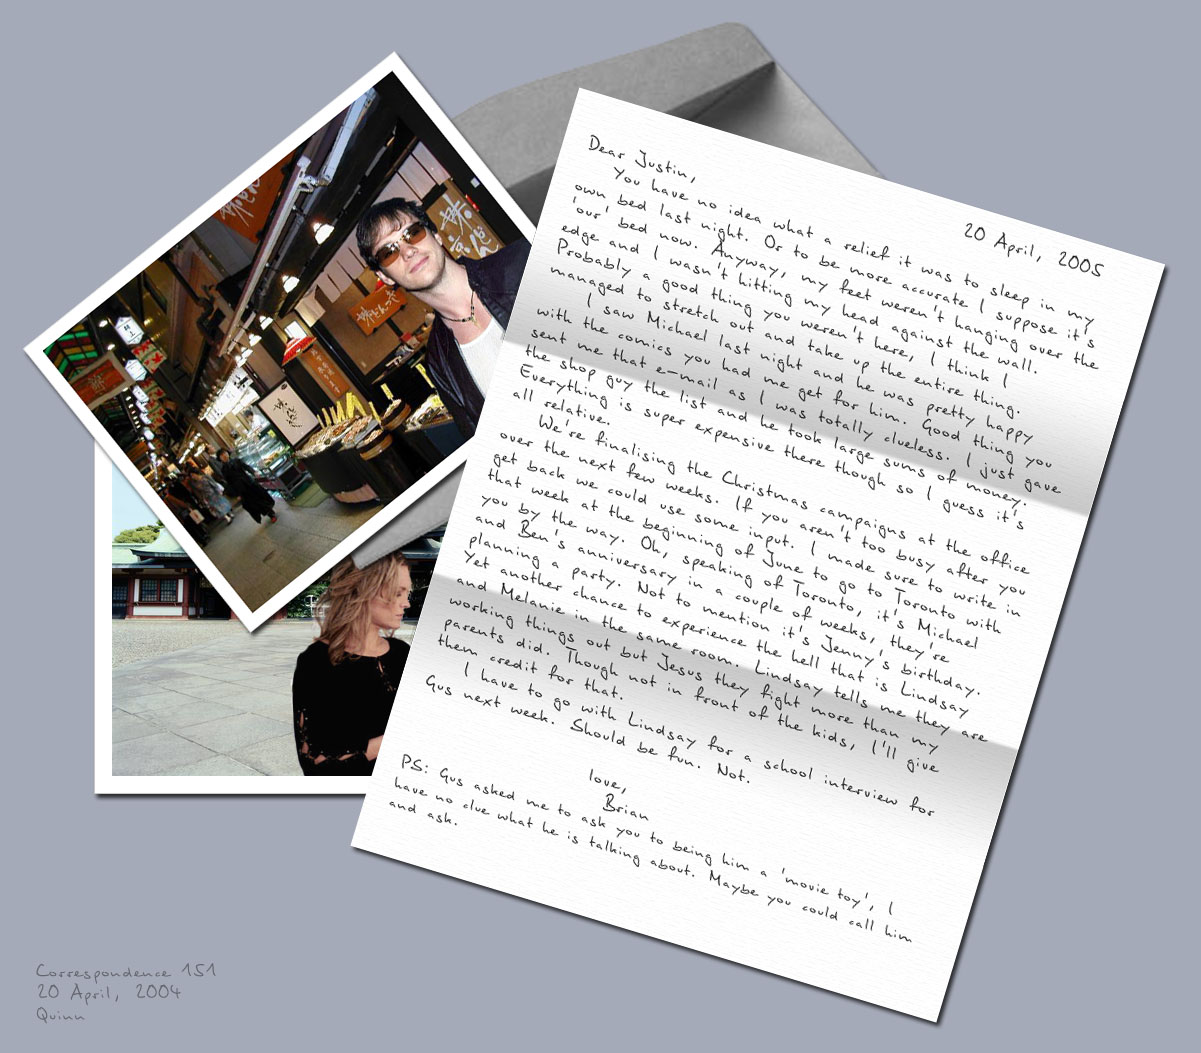 20 April, 2005
Dear Justin,
You have no idea what a relief it was to sleep in my
own bed last night. Or to be more accurate I suppose it's
'our' bed now. Anyway, my feet weren't hanging over the
edge and I wasn't hitting my head against the wall.
Probably a good thing you weren't here, I think I
managed to stretch out and take up the entire thing.
I saw Michael last night and he was pretty happy
with the comics you had me get for him. Good thing you
sent me that e-mail as I was totally clueless. I just gave
the shop guy the list and he took large sums of money.
Everything is super expensive there though so I guess it's
all relative.
We're finalising the Christmas campaigns at the office
over the next few weeks. If you aren't too busy after you
get back we could use some input. I made sure to write in
that week at the beginning of June to go to Toronto with
you by the way. Oh, speaking of Toronto, it's Michael
and Ben's anniversary in a couple of weeks, they're
planning a party. Not to mention it's Jenny's birthday.
Yet another chance to experience the hell that is Lindsay
and Melanie in the same room. Lindsay tells me they are
working things out but Jesus they fight more than my
parents did. Though not in front of the kids, I'll give
them credit for that.
I have to go with Lindsay for a school interview for
Gus next week. Should be fun. Not.
love,
Brian
PS: Gus asked me to ask you to being him a 'movie toy', I
have no clue what he is talking about. Maybe you could call him
and ask.
Correspondence 151
20 April, 2004
Quinn